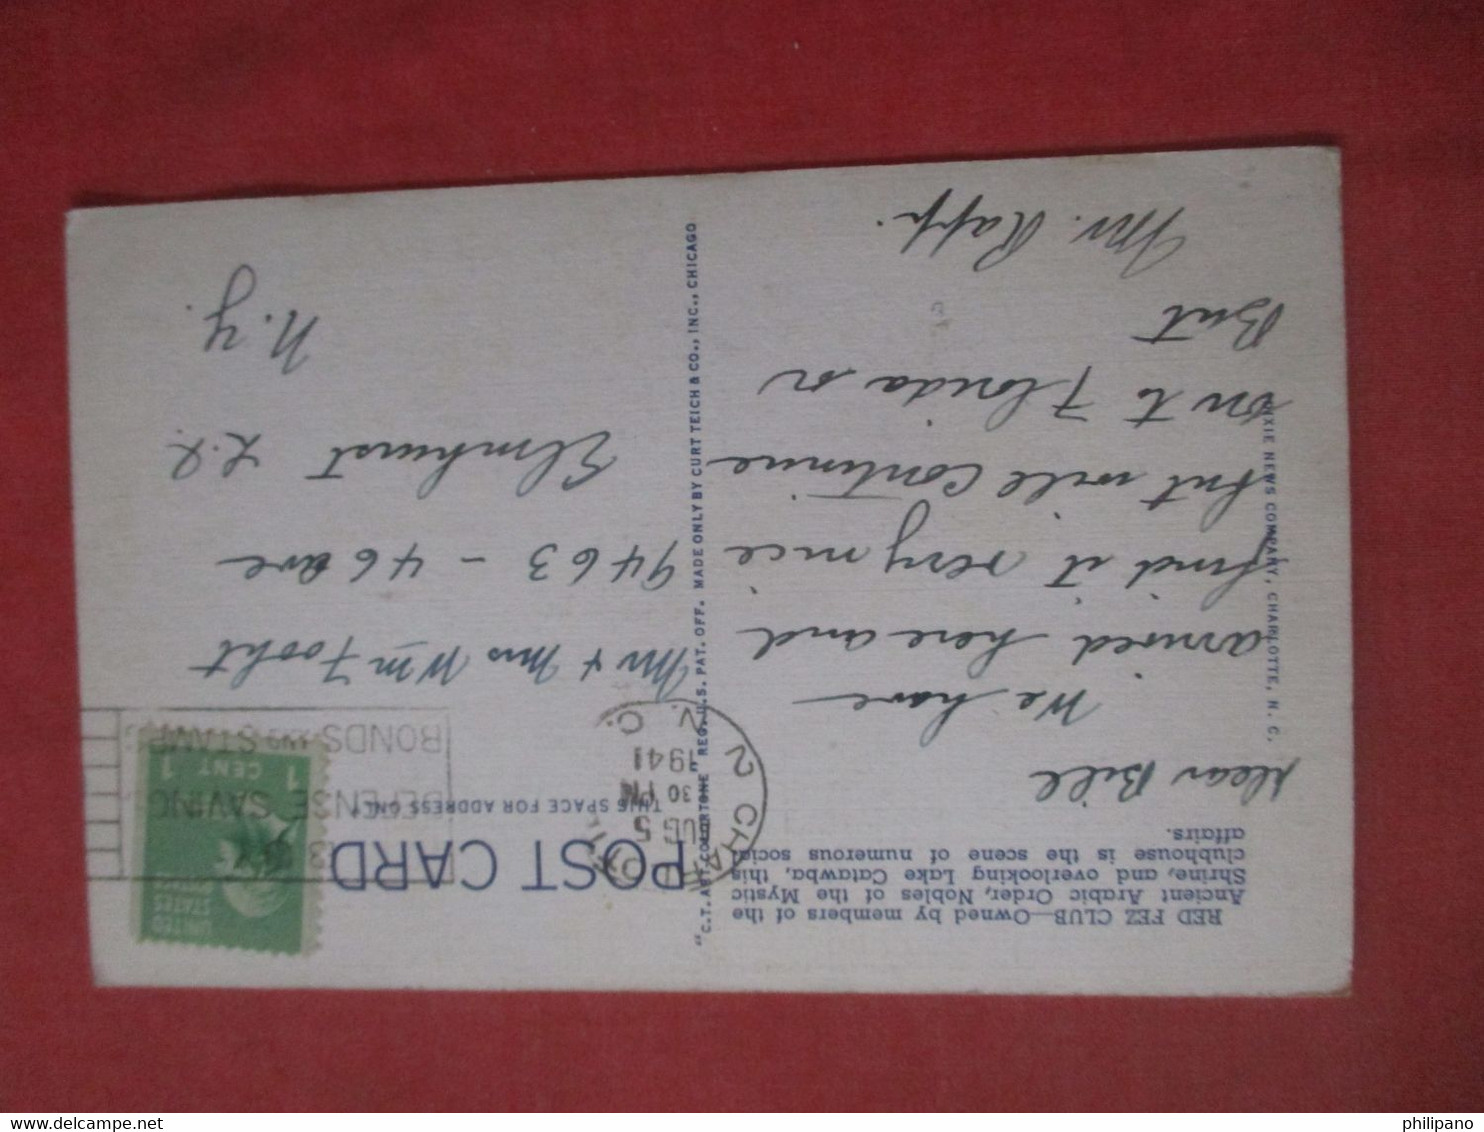 RED FEZ CLUB—Owned by members of the
Ancient Arabic Order, Nobles of the Mystic
Shrine, and overlooking Lake Catawba, this
clubhouse is the scene of numerous social
affairs.
Dear Bill
We have
arrived here and
find it very nice
but will continue
on to Florida on
But
Mr. Rapp.
DIXIE NEWS COMPANY, CHARLOTTE, N. C.
"C.T. ART-COLORTONE" REG. U.S. PAT. OFF. MADE ONLY BY CURT TEICH & CO., INC., CHICAGO
POST CARD
THIS SPACE FOR ADDRESS ONLY
CHARLOTTE
2
AUG 5
30 PM
1941
N. C.
DEFENSE SAVING
BONDS AND STAMPS
UNITED
STATES
1 CENT 1
Mr & Mrs Wm Fooht
9463 - 46 ave
Elmhurst L.I.
N.Y.
philipano